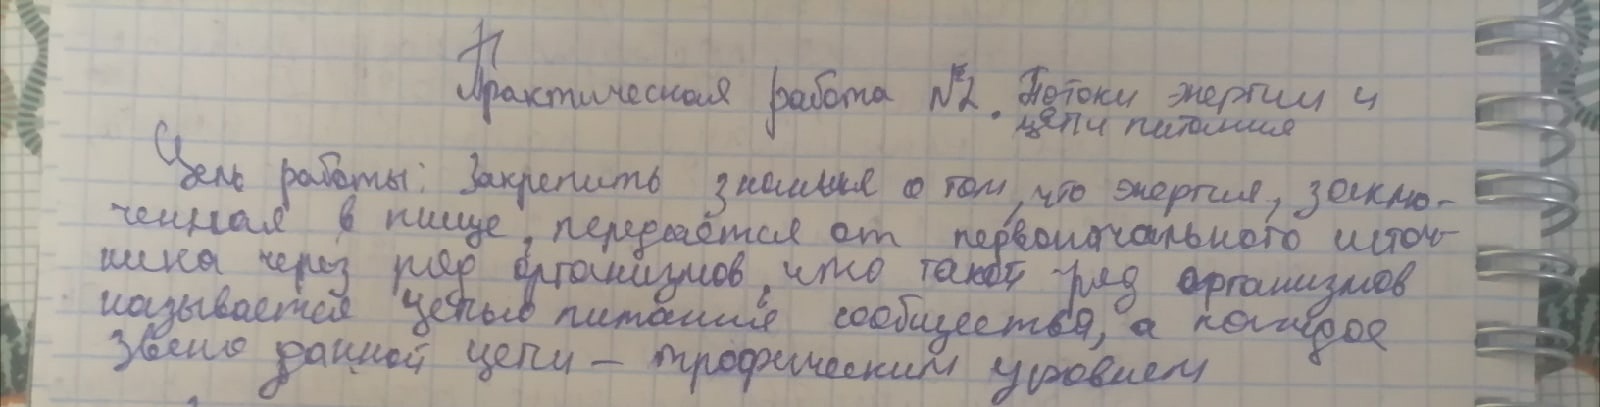 П
Практическая работа №2. Потоки энергии и
цепи питания
Цель работы: Закрепить знания о том, что энергия, заклю-
ченная в пище, передаётся от первоначального источ-
ника через ряд организмов, что такой ряд организмов
называется цепью питания сообщества, а каждое
звено данной цепи – трофическим уровнем